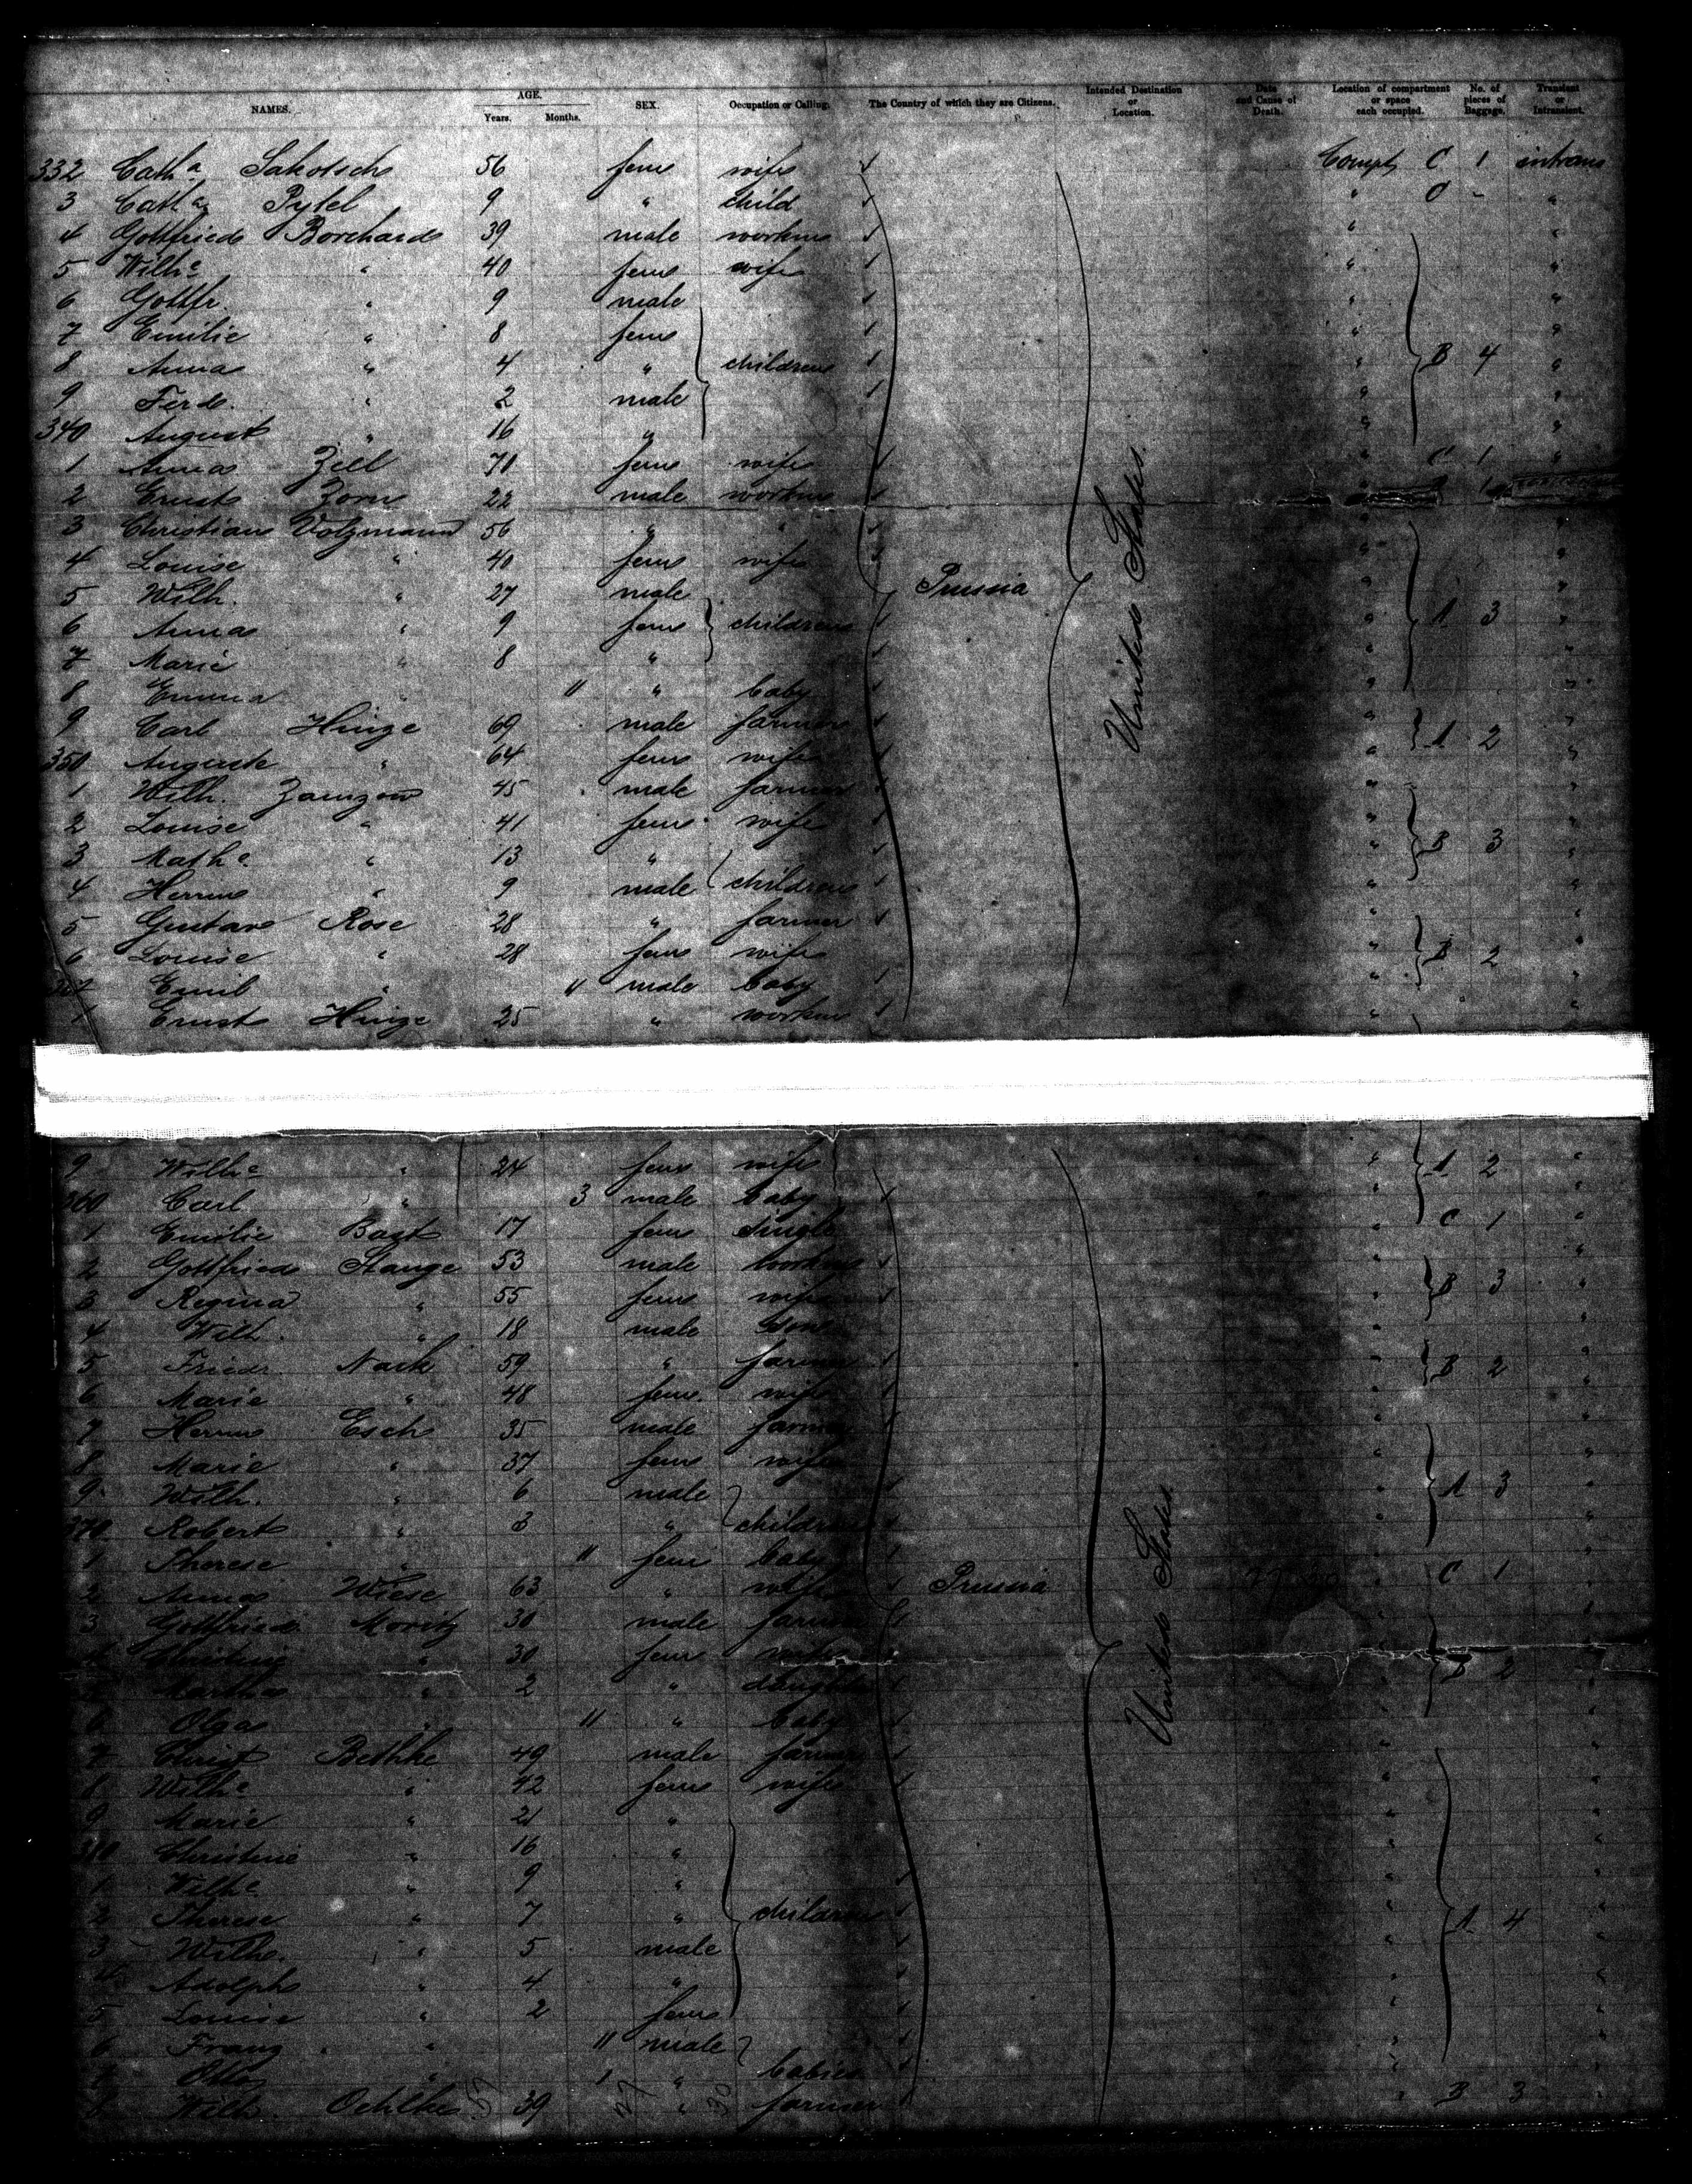 NAMES. AGE. Years. Months. SEX. Occupation or Calling. The Country of which they are Citizens. Intended Destination or Location. Date and Cause of Death. Location of compartment or space each occupied. No. of pieces of Baggage. Transient or Intransient.
332 Cath.a 56 fem wife Compt C 1 intrans
3 Cath.a Pytel 9 " child " C - "
4 Gottfried Borchard 39 male workm " "
5 Wilh.e " 40 fem wife " "
6 Gottfr. " 9 male " "
7 Emilie " 8 fem " "
8 Anna " 4 " children " B 4 "
9 Ferd. " 2 male " "
340 August " 16 " " "
1 Anna Zell 71 fem wife " C 1 "
2 Ernst Zorn 22 male workm " 1
3 Christian Volzmann 56 " " " "
4 Louise " 40 fem wife " "
5 Wilh. " 27 male Prussia United States " "
6 Anna " 9 fem children " A 3 "
7 Marie " 8 " " "
8 Emma " 11 " baby " "
9 Carl Hinze 69 male farmer " A 2 "
350 Auguste " 64 fem wife " "
1 Wilh. Zamzow 45 male farmer " "
2 Louise " 41 fem wife " "
3 Math.e " 13 " " B 3 "
4 Herm " 9 male children " "
5 Gustav Rose 28 " farmer " "
6 Louise " 28 fem wife " B 2 "
Emil " 11 male baby " "
Ernst Hinze 25 " workm " "
9 Wilh.e " 24 fem wife " A 2 "
360 Carl " 3 male baby " "
1 Emilie Bast 17 fem single " C 1 "
2 Gottfried Stange 53 male workm " "
3 Regina " 55 fem wife " B 3 "
4 Wilh. " 18 male son " "
5 Friedr. Nack 59 " farmer " B 2 "
6 Marie " 48 fem. wife " "
7 Herm Esch 35 male farmer " "
8 Marie " 37 fem wife " "
9 Wilh. " 6 male " A 3 "
370 Robert " 3 " children " "
1 Therese " 11 fem baby "
2 Anna Wiese 63 " wife Prussia United States C 1 "
3 Gottfried Moritz 30 male farmer " "
4 " 30 fem wife " B 2 "
5 Martha " 2 " daughter " "
6 Olga " 11 " baby " "
7 Christ Bethke 49 male farmer " "
8 Wilh.e " 42 fem wife " "
9 Marie " 21 " " "
380 Christine " 16 " " "
1 Wilh.e " 9 " " "
2 Therese " 7 " children " A 4 "
3 Wilh. " 5 male " "
4 Adolph " 4 " " "
5 Louise " 2 fem " "
6 Franz " 11 male " "
7 Otto " 1 " babies " "
8 Wilh. Oehlke 39 " farmer " B 3 "